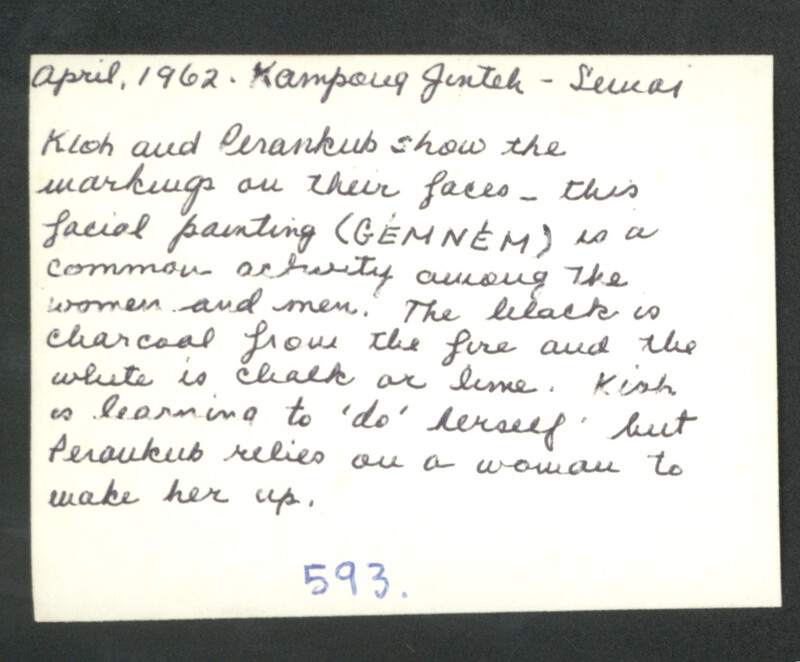 April, 1962. Kampong Jinteh - Semai
Kioh and Perankub show the
markings on their faces - this
facial painting (GĔMNĔM) is a
common activity among the
women and men. The black is
charcoal from the fire and the
white is chalk or lime. Kioh
is learning to 'do' herself but
Perankub relies on a woman to
make her up.
593.